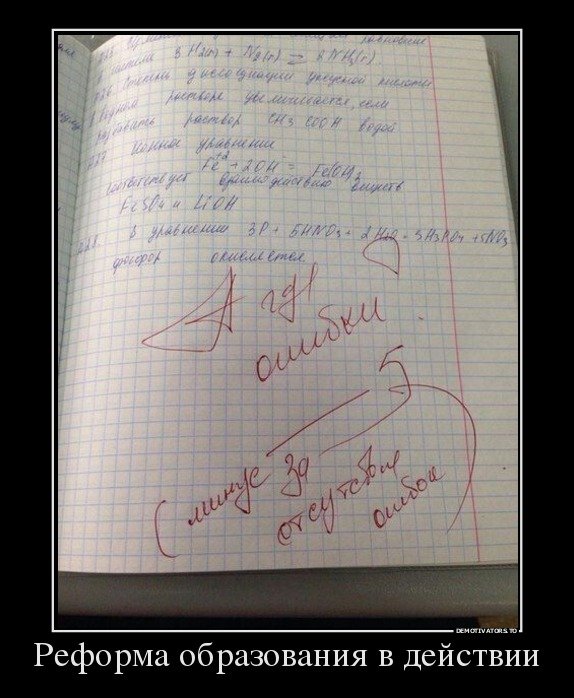 системе 3H2(г) + N2(г) ⇄ 2NH3(г).
А26. Степень диссоциации уксусной кислоты
в водном растворе увеличивается, если
разбавить раствор CH3COOH водой
А27 Ионное уравнение
Fe+2 + 2OH = Fe(OH)2
соответствует взаимодействию веществ
FeSO4 и LiOH
А28. В уравнении 3P + 5HNO3 + 2H2O = 3H3PO4 + 5NO
фосфор окисляется
А где
ошибки ?
5-
(минус за
отсутствие
ошибок)
DEMOTIVATORS.TO
Реформа образования в действии